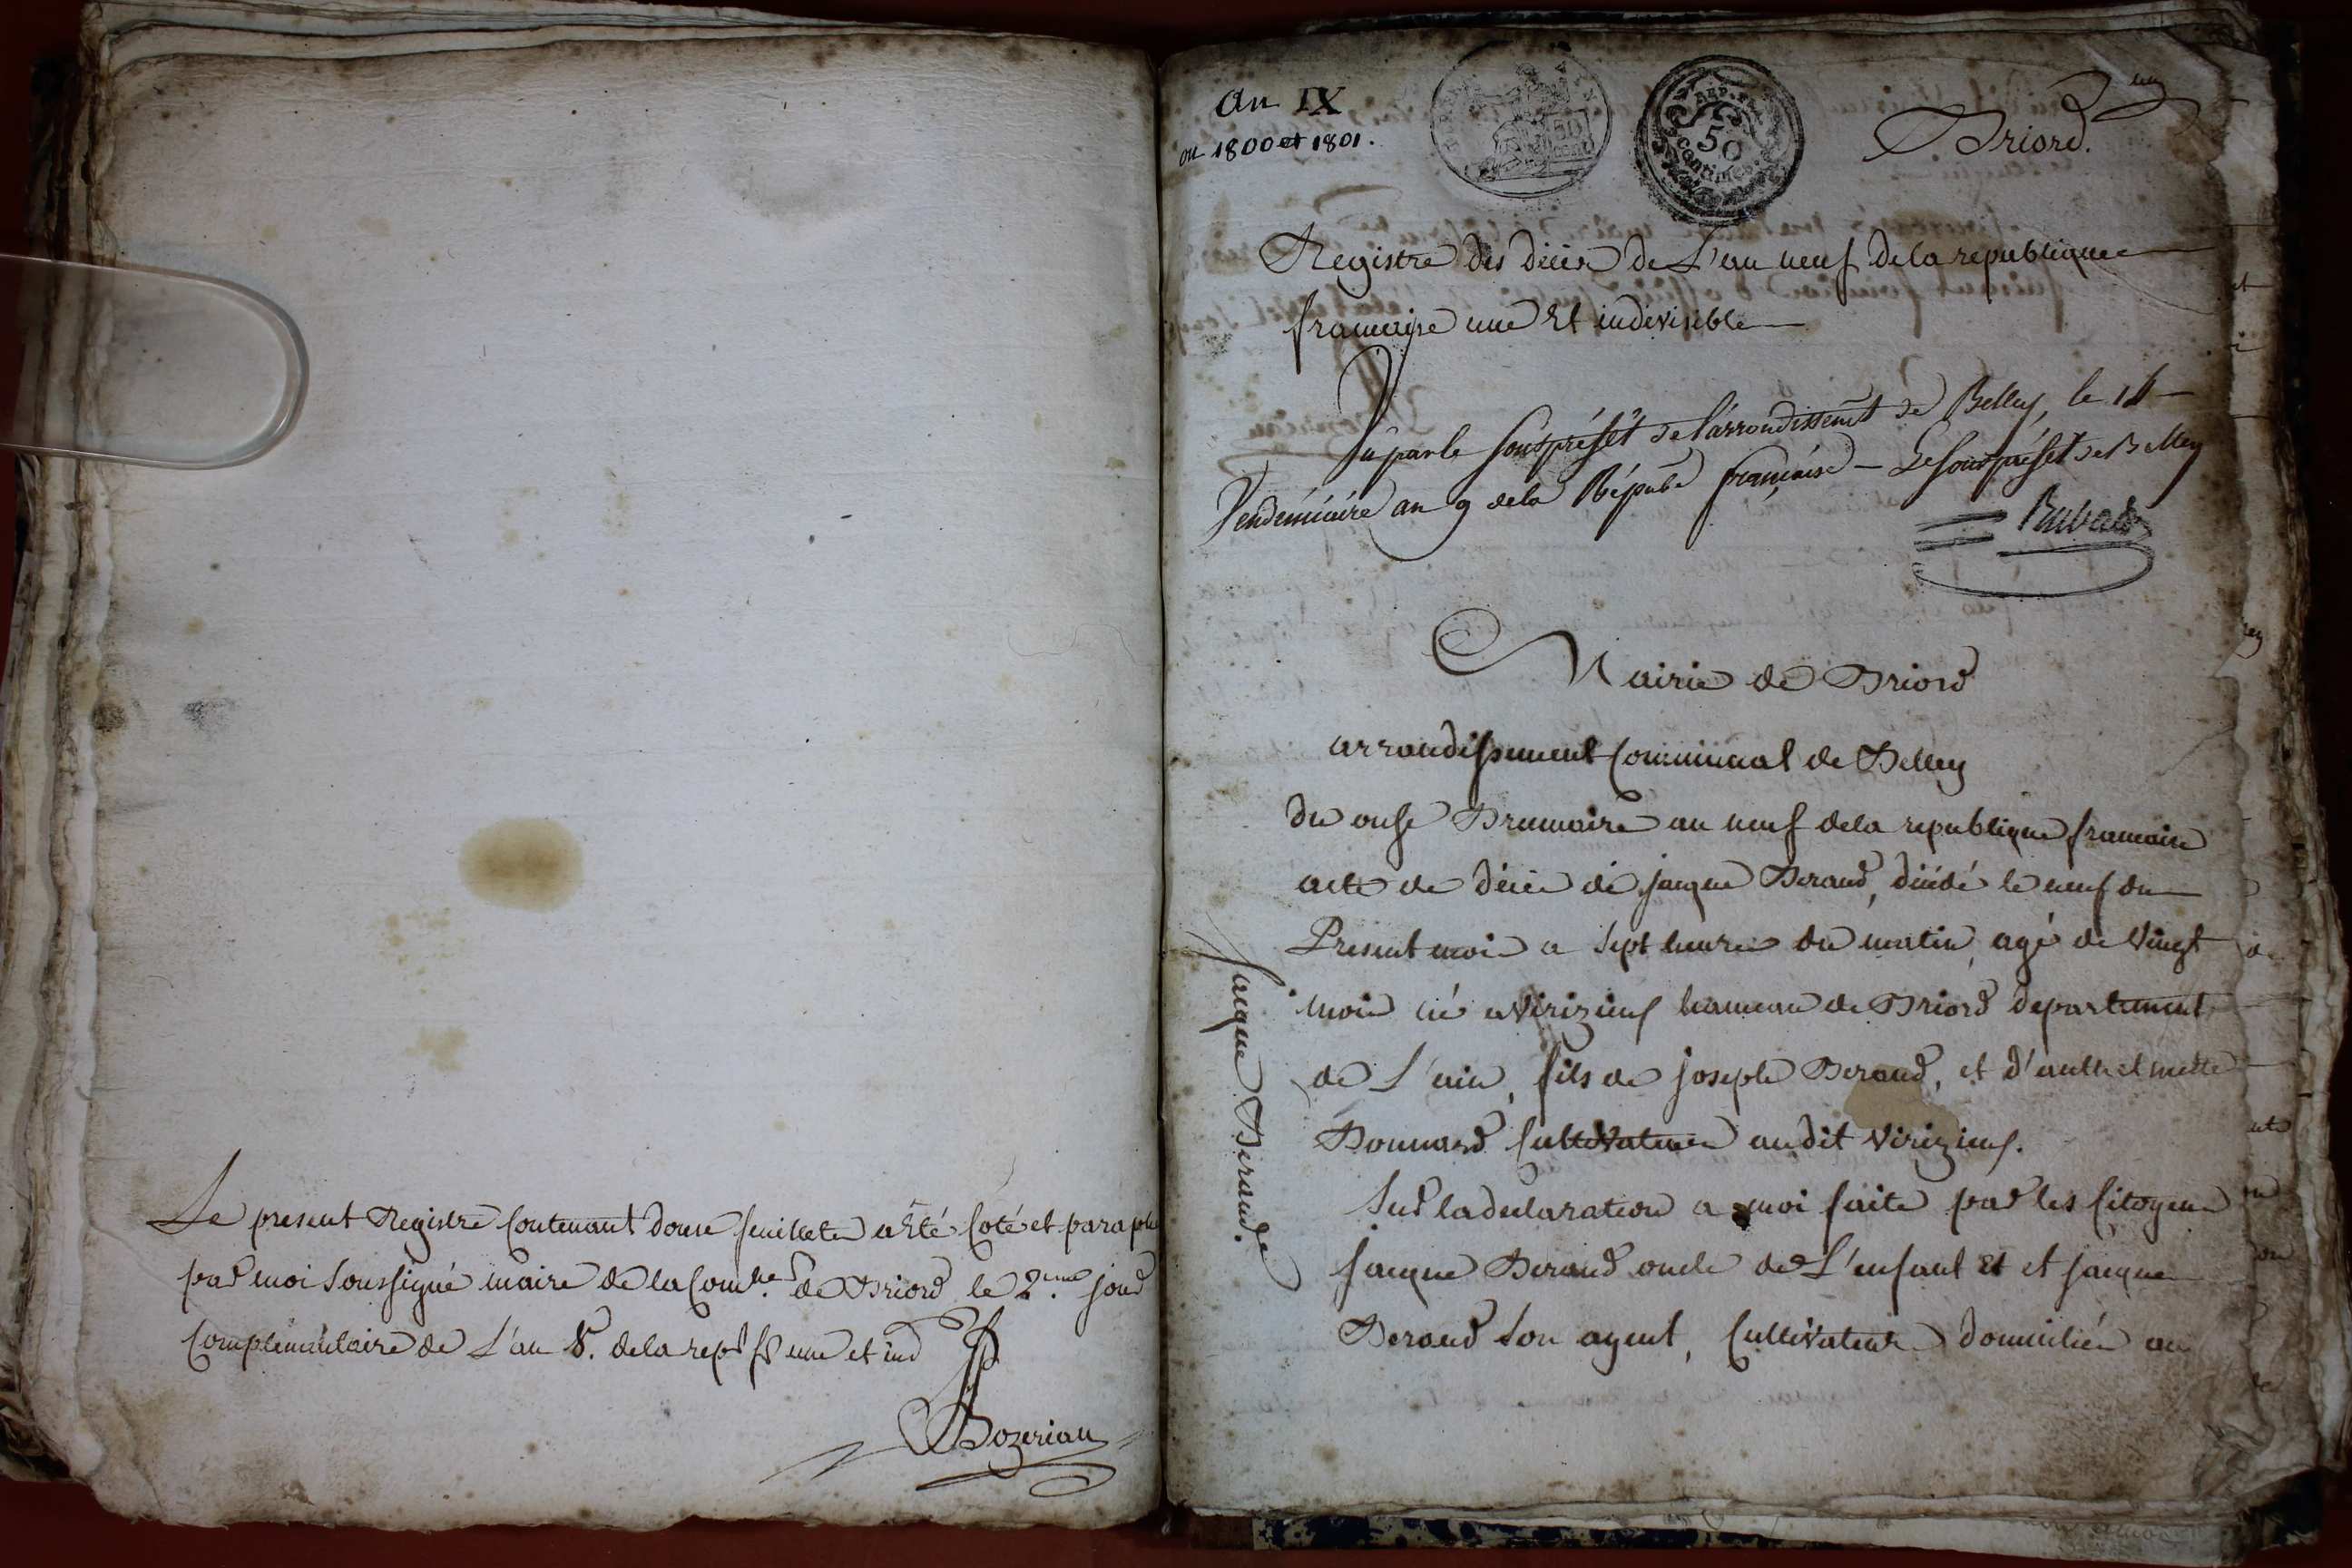 Le present Registre Contenant douse feuillets a Eté Coté et paraphé
par moi Soussigné maire de la Com.ne de Briord le 2.eme jour
Complémentaire de L'an 8. de la rep fse une et ind
Bozerian
an IX
ou 1800 et 1801.
REP. FRA
50
centimes
Briord.
Registre des décès de L'an neuf de la republique
francaise une Et indivisible
Vu par le Sous préfet de l'arrondissemt de Belley, le 14
Vendémiaire an 9 de la Répub.e française - Le sous préfet de Belley
Mairie de Briord
arrondissement Communal de Belley
du onse Brumaire an neuf de la republique francaise
acte de décès de jacque Beraud, décédé le neuf du
Present mois a Sept heures du matin, agé de Vingt
mois né a Virizieux hameau de Briord departement
de L'ain, fils de joseph Beraud, et d'anthelmette
Bonnard Cultivateurs audit Virizieux.
Sur la declaration a moi faite par les Citoyens
jacque Beraud oncle de L'enfant Et et jacque
Beraud Son agent, Cultivateurs domiciliés au
Jacque Beraud.